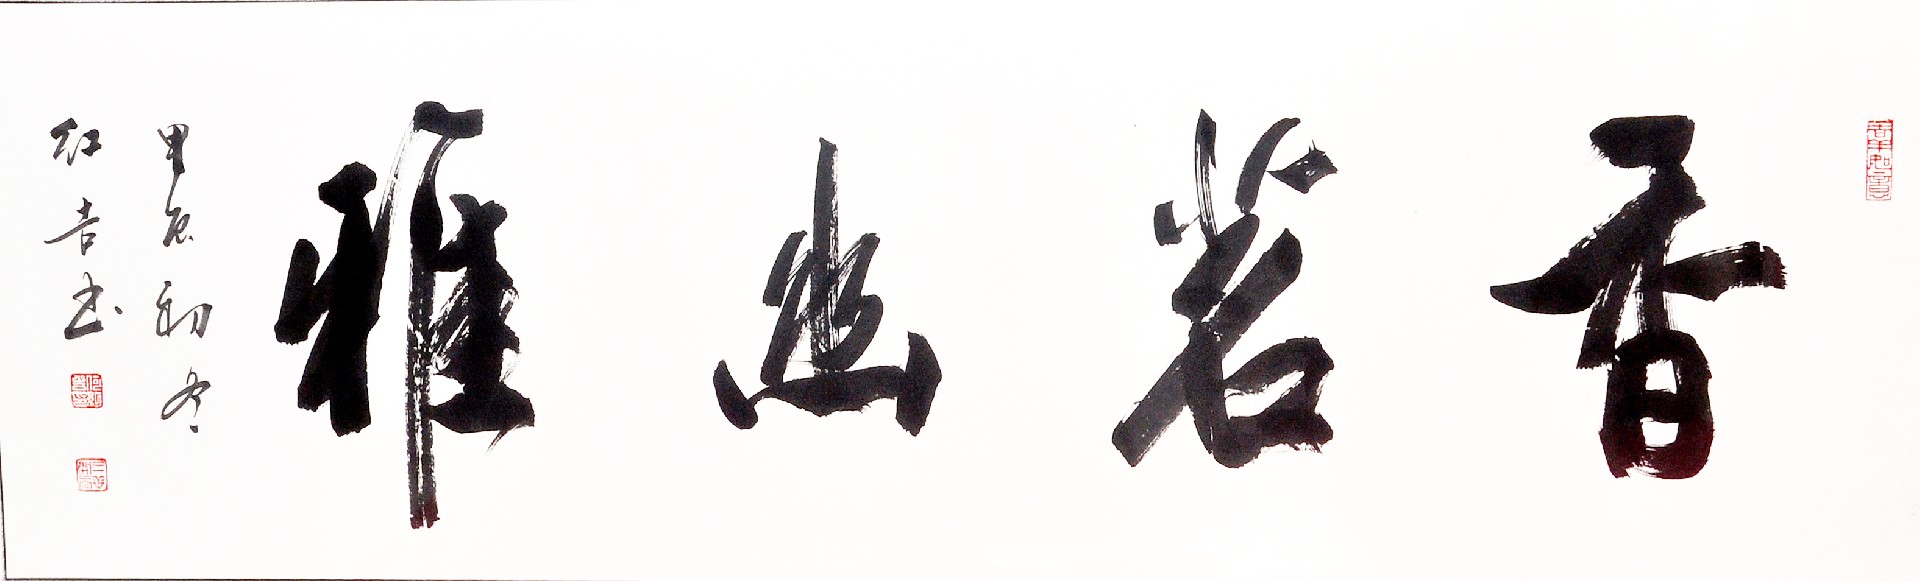 香茗幽雅
甲辰初冬
红吉书